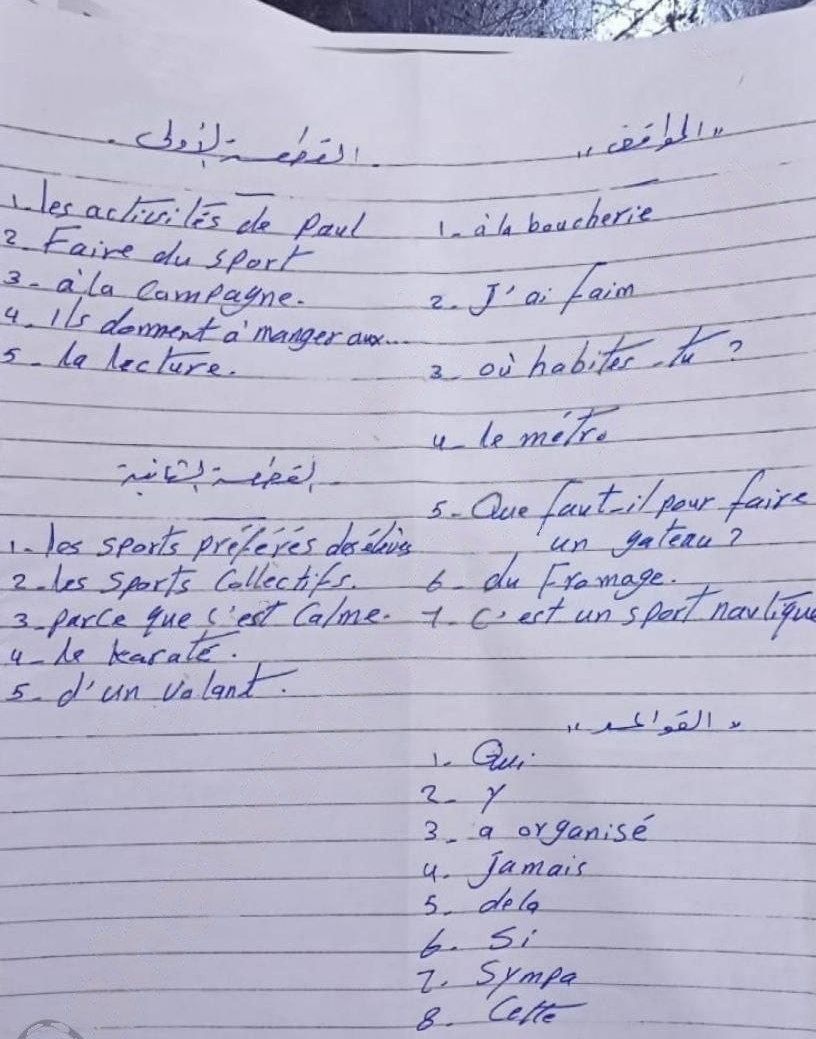 القطعة الأولى.
1. les activités de Paul
2. Faire du sport
3- à la campagne.
4. Ils donnent à manger aux...
5- la lecture.
القطعة الثانية
1- les sports préférés des élèves
2- les sports collectifs.
3- parce que c'est calme.
4- le karaté.
5- d'un volant.
"المواقف"
1- à la boucherie
2. J'ai faim
3- où habites-tu?
4- le métro
5- Que faut-il pour faire
un gateau?
6- du fromage.
7- c'est un sport nautique
"القواعد"
1- Qui
2- y
3- a organisé
4. jamais
5. de la
6. Si
7. sympa
8. Cette